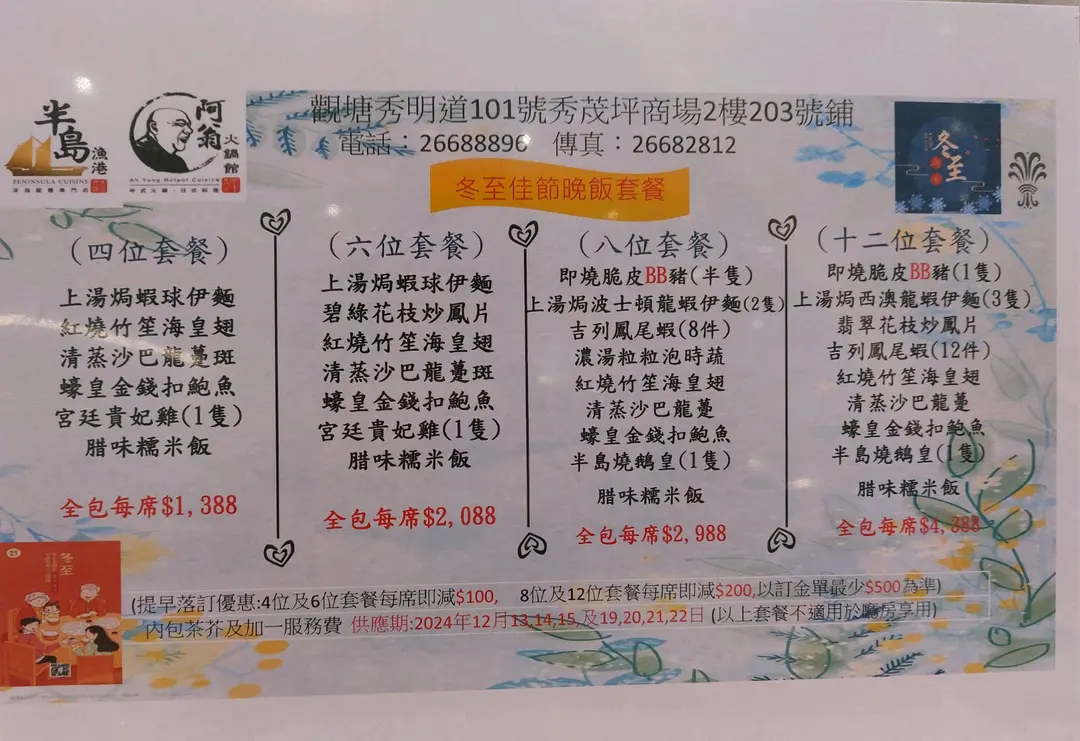 半島漁港
PENINSULA CUISINE
阿翁火鍋館
Ah Yung Hotpot Cuisine
觀塘秀明道101號秀茂坪商場2樓203號鋪
電話：26688896 傳真：26682812
冬至
冬至佳節晚飯套餐
(四位套餐)
上湯焗蝦球伊麵
紅燒竹笙海皇翅
清蒸沙巴龍躉斑
蠔皇金錢扣鮑魚
宮廷貴妃雞(1隻)
腊味糯米飯
全包每席$1,388
(六位套餐)
上湯焗蝦球伊麵
碧綠花枝炒鳳片
紅燒竹笙海皇翅
清蒸沙巴龍躉斑
蠔皇金錢扣鮑魚
宮廷貴妃雞(1隻)
腊味糯米飯
全包每席$2,088
(八位套餐)
即燒脆皮BB豬(半隻)
上湯焗波士頓龍蝦伊麵(2隻)
吉列鳳尾蝦(8件)
濃湯粒粒泡時蔬
紅燒竹笙海皇翅
清蒸沙巴龍躉
蠔皇金錢扣鮑魚
半島燒鵝皇(1隻)
腊味糯米飯
全包每席$2,988
(十二位套餐)
即燒脆皮BB豬(1隻)
上湯焗西澳龍蝦伊麵(3隻)
翡翠花枝炒鳳片
吉列鳳尾蝦(12件)
紅燒竹笙海皇翅
清蒸沙巴龍躉
蠔皇金錢扣鮑魚
半島燒鵝皇(1隻)
腊味糯米飯
全包每席$4,388
冬至
(提早落訂優惠:4位及6位套餐每席即減$100, 8位及12位套餐每席即減$200,以訂金單最少$500為準)
內包茶芥及加一服務費 供應期:2024年12月13,14,15,及19,20,21,22日 (以上套餐不適用於廳房享用)